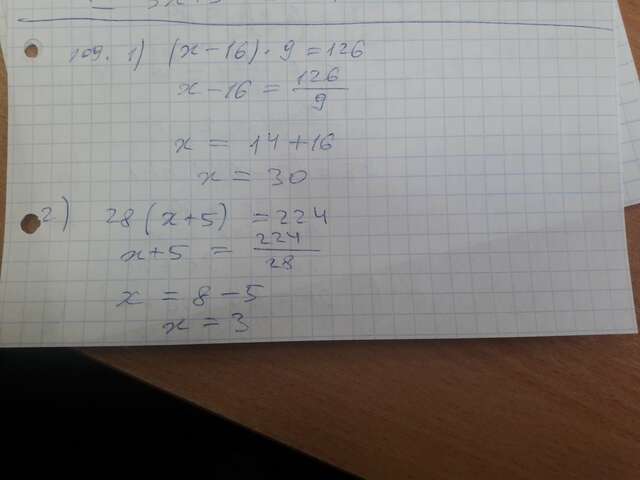 109. 1) (x-16)·9=126
x-16 = 126/9
x = 14+16
x = 30
2) 28(x+5) = 224
x+5 = 224/28
x = 8-5
x = 3